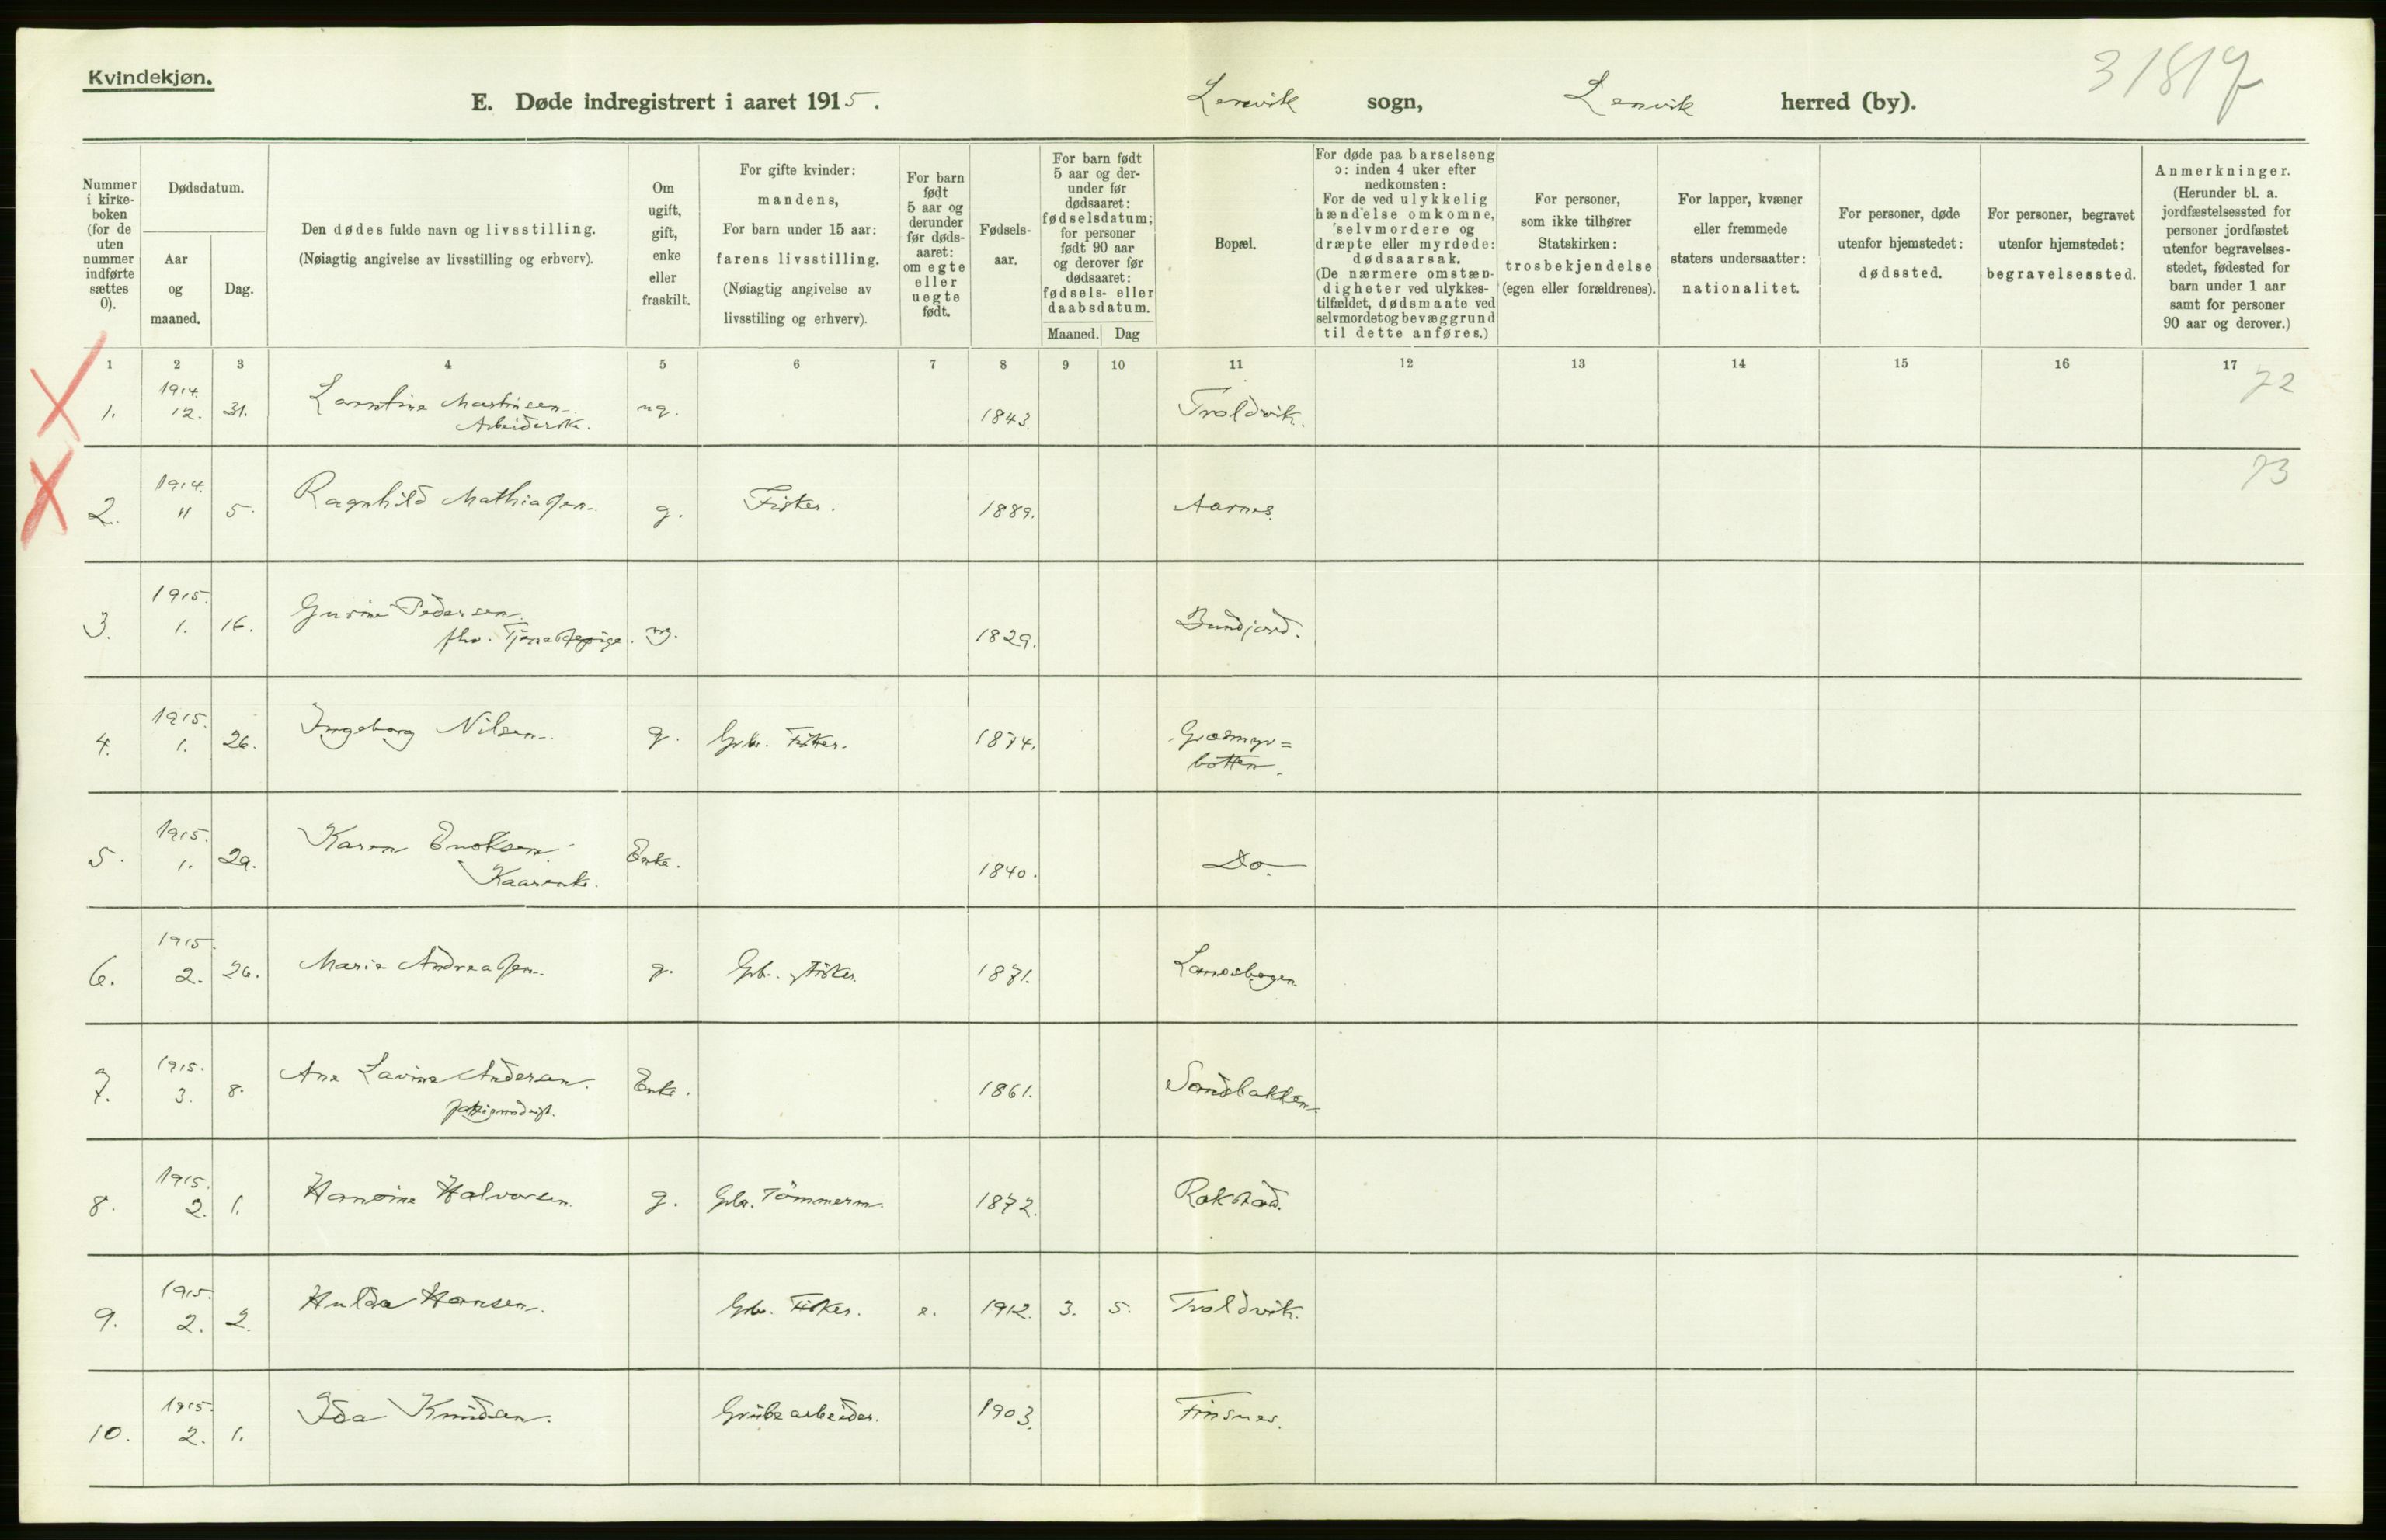 Kvindekjøn.
E. Døde indregistrert i aaret 1915.
Lenvik sogn, Lenvik herred (by).
3/8/17
Nummer i kirke-boken (for de uten nummer indførte sættes 0).
Dødsdatum.
Aar og maaned.
Dag.
Den dødes fulde navn og livsstilling.
(Nøiagtig angivelse av livsstilling og erhverv).
Om ugift, gift, enke eller fraskilt.
For gifte kvinder:
mandens,
For barn under 15 aar:
farens livsstilling.
(Nøiagtig angivelse av livsstiling og erhverv).
For barn født 5 aar og derunder før døds-aaret: om egte eller uegte født.
Fødsels-aar.
For barn født 5 aar og der-under før dødsaaret: fødselsdatum; for personer født 90 aar og derover før dødsaaret: fødsels- eller daabsdatum.
Maaned. Dag
Bopæl.
For døde paa barselseng ɔ: inden 4 uker efter nedkomsten:
For de ved ulykkelig hændelse omkomne, selvmordere og dræpte eller myrdede: dødsaarsak.
(De nærmere omstæn-digheter ved ulykkes-tilfældet, dødsmaate ved selvmordet og bevæggrund til dette anføres.)
For personer, som ikke tilhører Statskirken: trosbekjendelse (egen eller forældrenes).
For lapper, kvæner eller fremmede staters undersaatter: nationalitet.
For personer, døde utenfor hjemstedet: dødssted.
For personer, begravet utenfor hjemstedet: begravelsessted.
Anmerkninger.
(Herunder bl. a. jordfæstelsessted for personer jordfæstet utenfor begravelses-stedet, fødested for barn under 1 aar samt for personer 90 aar og derover.)
1 2 3 4 5 6 7 8 9 10 11 12 13 14 15 16 17
1. 1914. 12. 31. Martinsen. Arbeiderske. ug. 1843. Troldvik. 72
2. 1914. 11 5. Ragnhild Mathiassen. g. Fisker. 1889. Aarnes. 73
3. 1915. 1. 16. Gurine Pedersen. fhv. Tjenestepige. ug. 1829. Bundjord.
4. 1915. 1. 26. Ingeborg Nilsen. g. Gbr. Fisker. 1874. Græsmyr=
botten.
5. 1915. 1. 29. Karen Enoksen. Kaarenke. Enke. 1840. Do.
6. 1915. 2. 26. Marie Andreassen. g. Gbr. Fisker. 1871.
7. 1915. 3. 8. Ane Lavine Andersen. Enke. 1861. Sandbakken.
8. 1915. 2. 1. Hansine Halvorsen. g. Gbr. Tömmerm. 1872. Rakstad.
9. 1915. 2. 2. Hulda Hansen. Gbr. Fisker. e. 1912. 3. 5. Troldvik.
10. 1915. 2. 1. Ida Knudsen. Grubearbeider. 1903. Finsnes.